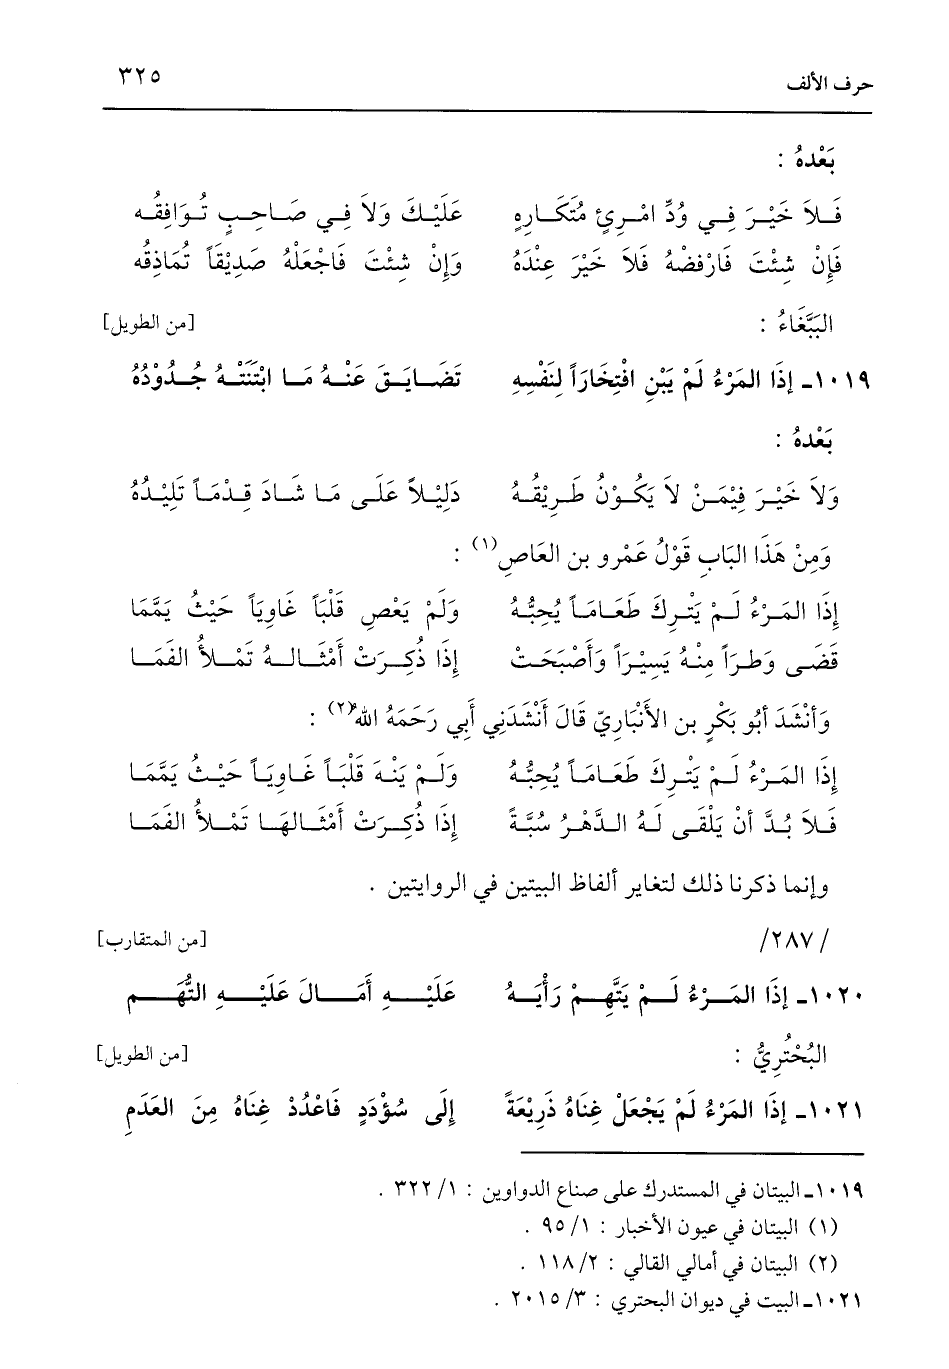 حرف الألف ٣٢٥
بَعْدهُ :
فَلاَ خَيْرَ فِي وُدِّ امْرِئٍ مُتَكَارِهٍ عَلَيْكَ وَلاَ فِي صَاحِبٍ تُوَافِقُه
فَإِنْ شِئْتَ فَارْفضْهُ فَلاَ خَيْرَ عِنْدَهُ وَإِنْ شِئْتَ فَاجْعَلْهُ صَدِيْقَاً تُمَاذِقُه
البَبَّغَاءُ : [من الطويل]
١٠١٩ـ إذَا المَرْءُ لَمْ يَبْنِ افْتِخَارَاً لِنَفْسِهِ تَضَايَقَ عَنْهُ مَا ابْتَنَتْهُ جُدُوْدُهُ
بَعْدهُ :
وَلاَ خَيْرَ فِيْمَنْ لاَ يَكُوْنُ طَرِيْقُهُ دَلِيْلاً عَلَى مَا شَادَ قِدْمَاً تَلِيْدُهُ
وَمِنْ هَذَا البَابِ قَوْلُ عَمْرو بن العَاصِ(١) :
إِذَا المَرْءُ لَمْ يَتْرِكَ طَعَامَاً يُحِبُّهُ وَلَمْ يَعْصِ قَلْبَاً غَاوِيَاً حَيْثُ يَمَّمَا
قَضَى وَطرَاً مِنْهُ يَسِيْرَاً وَأَصْبَحَتْ إِذَا ذُكِرَتْ أَمْثَالهُ تَمْلأُ الفَمَا
وَأَنْشَدَ أَبُو بَكْرٍ بن الأَنْبَارِيّ قَالَ أَنْشَدَنِي أَبِي رَحَمَهُ اللهُ(٢) :
إِذَا المَرْءُ لَمْ يَتْرِكَ طَعَامَاً يُحِبُّهُ وَلَمْ يَنْهَ قَلْبَاً غَاوِيَاً حَيْثُ يَمَّمَا
فَلاَ بُدَّ أَنْ يَلْقَى لَهُ الدَّهْرُ سُبَّةً إِذَا ذُكِرَتْ أَمْثَالهَا تَمْلأُ الفَمَا
وإنما ذكرنا ذلك لتغاير ألفاظ البيتين في الروايتين .
/ ٢٨٧/ [من المتقارب]
١٠٢٠ـ إذَا المَرْءُ لَمْ يَتَّهِمْ رَأْيَهُ عَلَيْهِ أَمَالَ عَلَيْهِ التُّهَمِ
البُحْتُرِيُّ : [من الطويل]
١٠٢١ـ إذَا المَرْءُ لَمْ يَجْعَلْ غِنَاهُ ذَرِيْعَةً إِلَى سُؤْدَدٍ فَاعْدُدْ غِنَاهُ مِنَ العَدَمِ
١٠١٩ـ البيتان في المستدرك على صناع الدواوين : ١/ ٣٢٢ .
(١) البيتان في عيون الأخبار : ١/ ٩٥ .
(٢) البيتان في أمالي القالي : ٢/ ١١٨ .
١٠٢١ـ البيت في ديوان البحتري : ٣/ ٢٠١٥ .